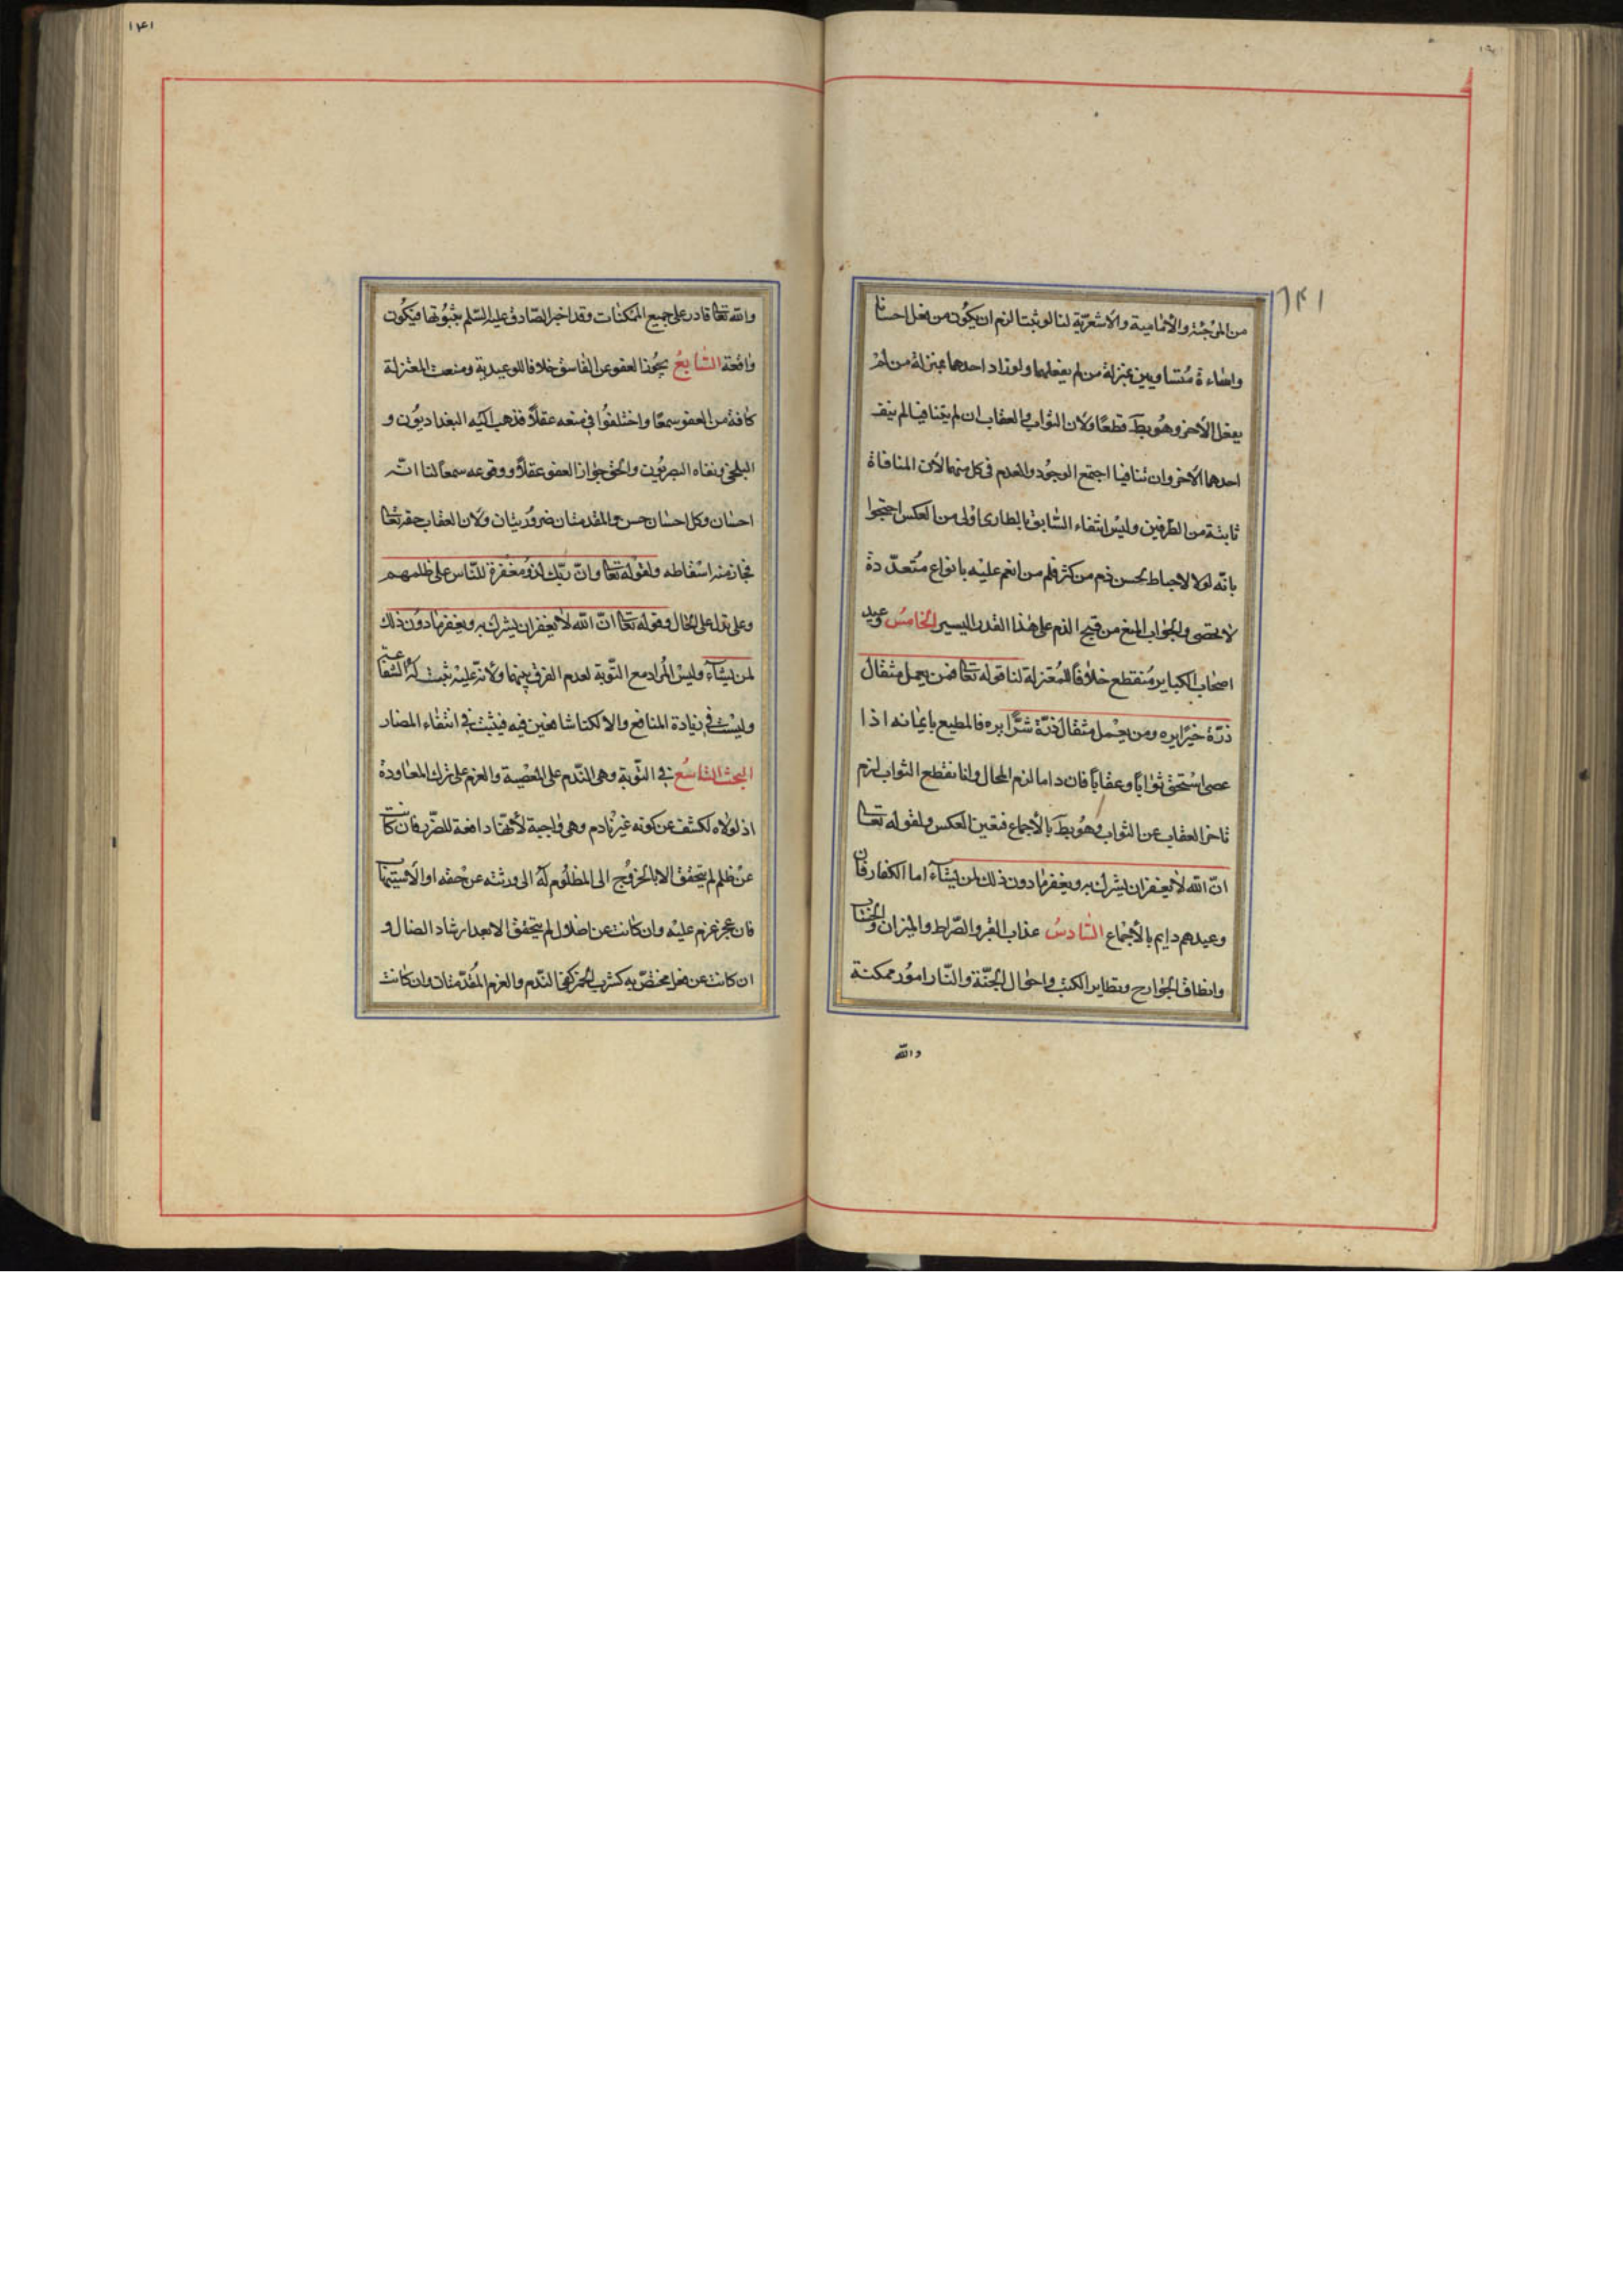 ١٤١
من المرجئة والأمامية والأشعريّة لنا لو ثبتا لزم ان يكون من فعل احسانا
واساءة متساويين بمنزلة من لم يفعلهما ولو زاد احدهما بمنزلة من لم
يفعل الأخر وهو بط قطعًا ولان الثواب والعقاب ان لم يتنافيا لم ينف
احدهما الاخر وان تنافيا اجتمع الوجود والعدم فى كل منهما لان المنافاة
ثابتة من الطرفين وليس انتفاء السّابق بالطارى اولى من العكس احتجوا
بانّه لولا الاحباط لحسن ذم من كثر من انعم عليه بانواع متعدّدة
لا تحصى والجواب المنع من قبح الذم على هذا القدر اليسير الخامسُ وعيد
اصحاب الكباير منقطع خلافًا للمعتزلة لنا قوله تعا فمن يعمل مثقال
ذرّة خيرًا يره ومن يعمل مثقال ذرّة شرًّا يره فالمطيع بايمانه اذا
عصى استحق ثوابًا وعقابًا فان داما لزم المحال وان انقطع الثواب لزم
تاخر العقاب عن الثواب وهو بط بالأجماع فتعين العكس ولقوله تعا
انّ الله لا يغفر ان يشرك به ويغفر ما دون ذلك لمن يشاء اما الكفار فان
وعيدهم دايم بالأجماع السّادسُ عذاب القبر والصّراط والميزان والحساب
وانطاق الجوارح وتطاير الكتب واحوال الجنّة والنّار امور ممكنة
والله
١٤١
والله تعا قادر على جميع الممكنات وقد اخبر الصّادق عليه السّلم بثبوتها فيكون
واقعة السّابعُ يجوز العفو عن الفاسق خلافا للوعيدية ومنعت المعتزلة
كافة من العفو سمعًا واختلفوا فى منعه عقلاً فذهب اليه البغداديون و
البلخى ونفاه البصريون والحق جواز العفو عقلاً ووقوعه سمعا لنا انّه
احسان وكل احسان حسن والمقدمتان ضروريتان ولان العقاب حقه تعا
فجاز منه اسقاطه ولقوله تعا وانّ ربّك لذو مغفرة للنّاس على ظلمهم
وعلى تدل على الحال وقوله تعا انّ الله لا يغفر ان يشرك به ويغفر ما دون ذلك
لمن يشاء وليس المراد مع التّوبة لعدم الفرق بينهما ولانه عليه ثبت له الشفاعة
وليست فى زيادة المنافع والا لكنا شافعين فيه فيثبت فى انتفاء المضار
البحث التّاسعُ فى التّوبة وهى النّدم على المعصية والعزم على ترك المعاودة
اذ لولاه لكشف عن كونه غير نادم وهى واجبة لأنّها دافعة للضّرر فان كانت
عن ظلم لم يتحقق الا بالخروج الى المظلوم او الى ورثته عن حقه او الاستيهاب
فان عجز عزم عليه وان كانت عن اضلال لم يتحقق الا بعد ارشاد الضال و
ان كانت عن فعل مختصّ به كشرب الخمر كفى النّدم والعزم المقدّمتان وان كانت